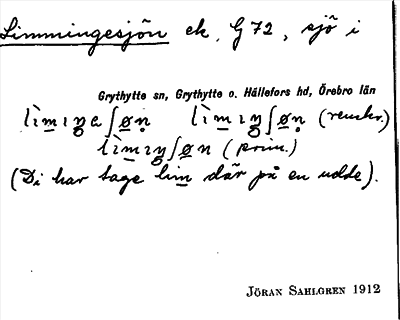 Limmingesjön ek. G 72, sjö i
Grythytte sn, Grythytte o. Hällefors hd, Örebro län
lìmıŋeʃøn lìmıŋʃøn (renskr.)
lìmıŋʃøn (prim.)
(Di har tage lim där på en udde).
JÖRAN SAHLGREN 1912